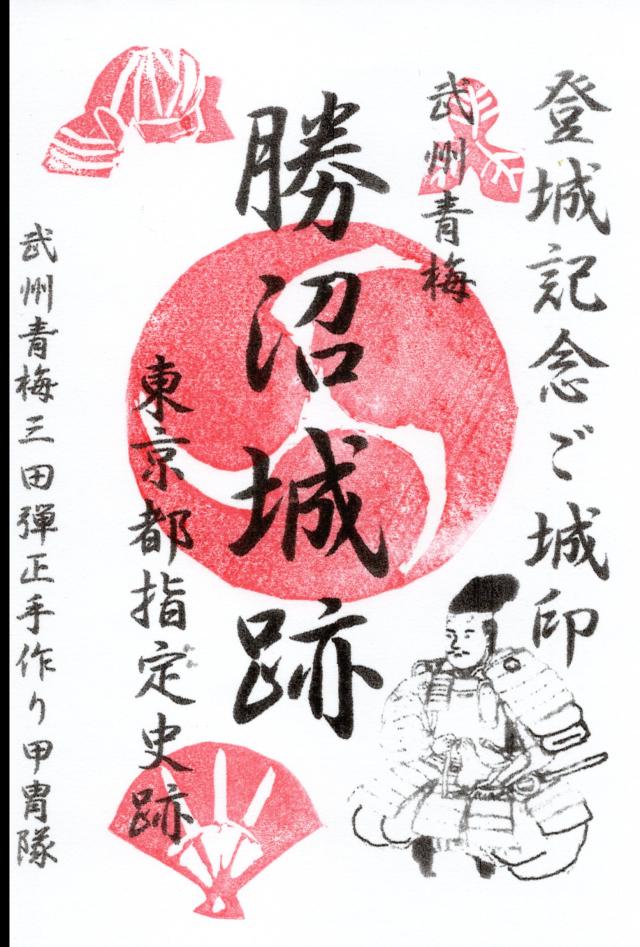 登城記念ご城印
武州青梅
勝沼城跡
東京都指定史跡
武州青梅三田弾正手作り甲冑隊